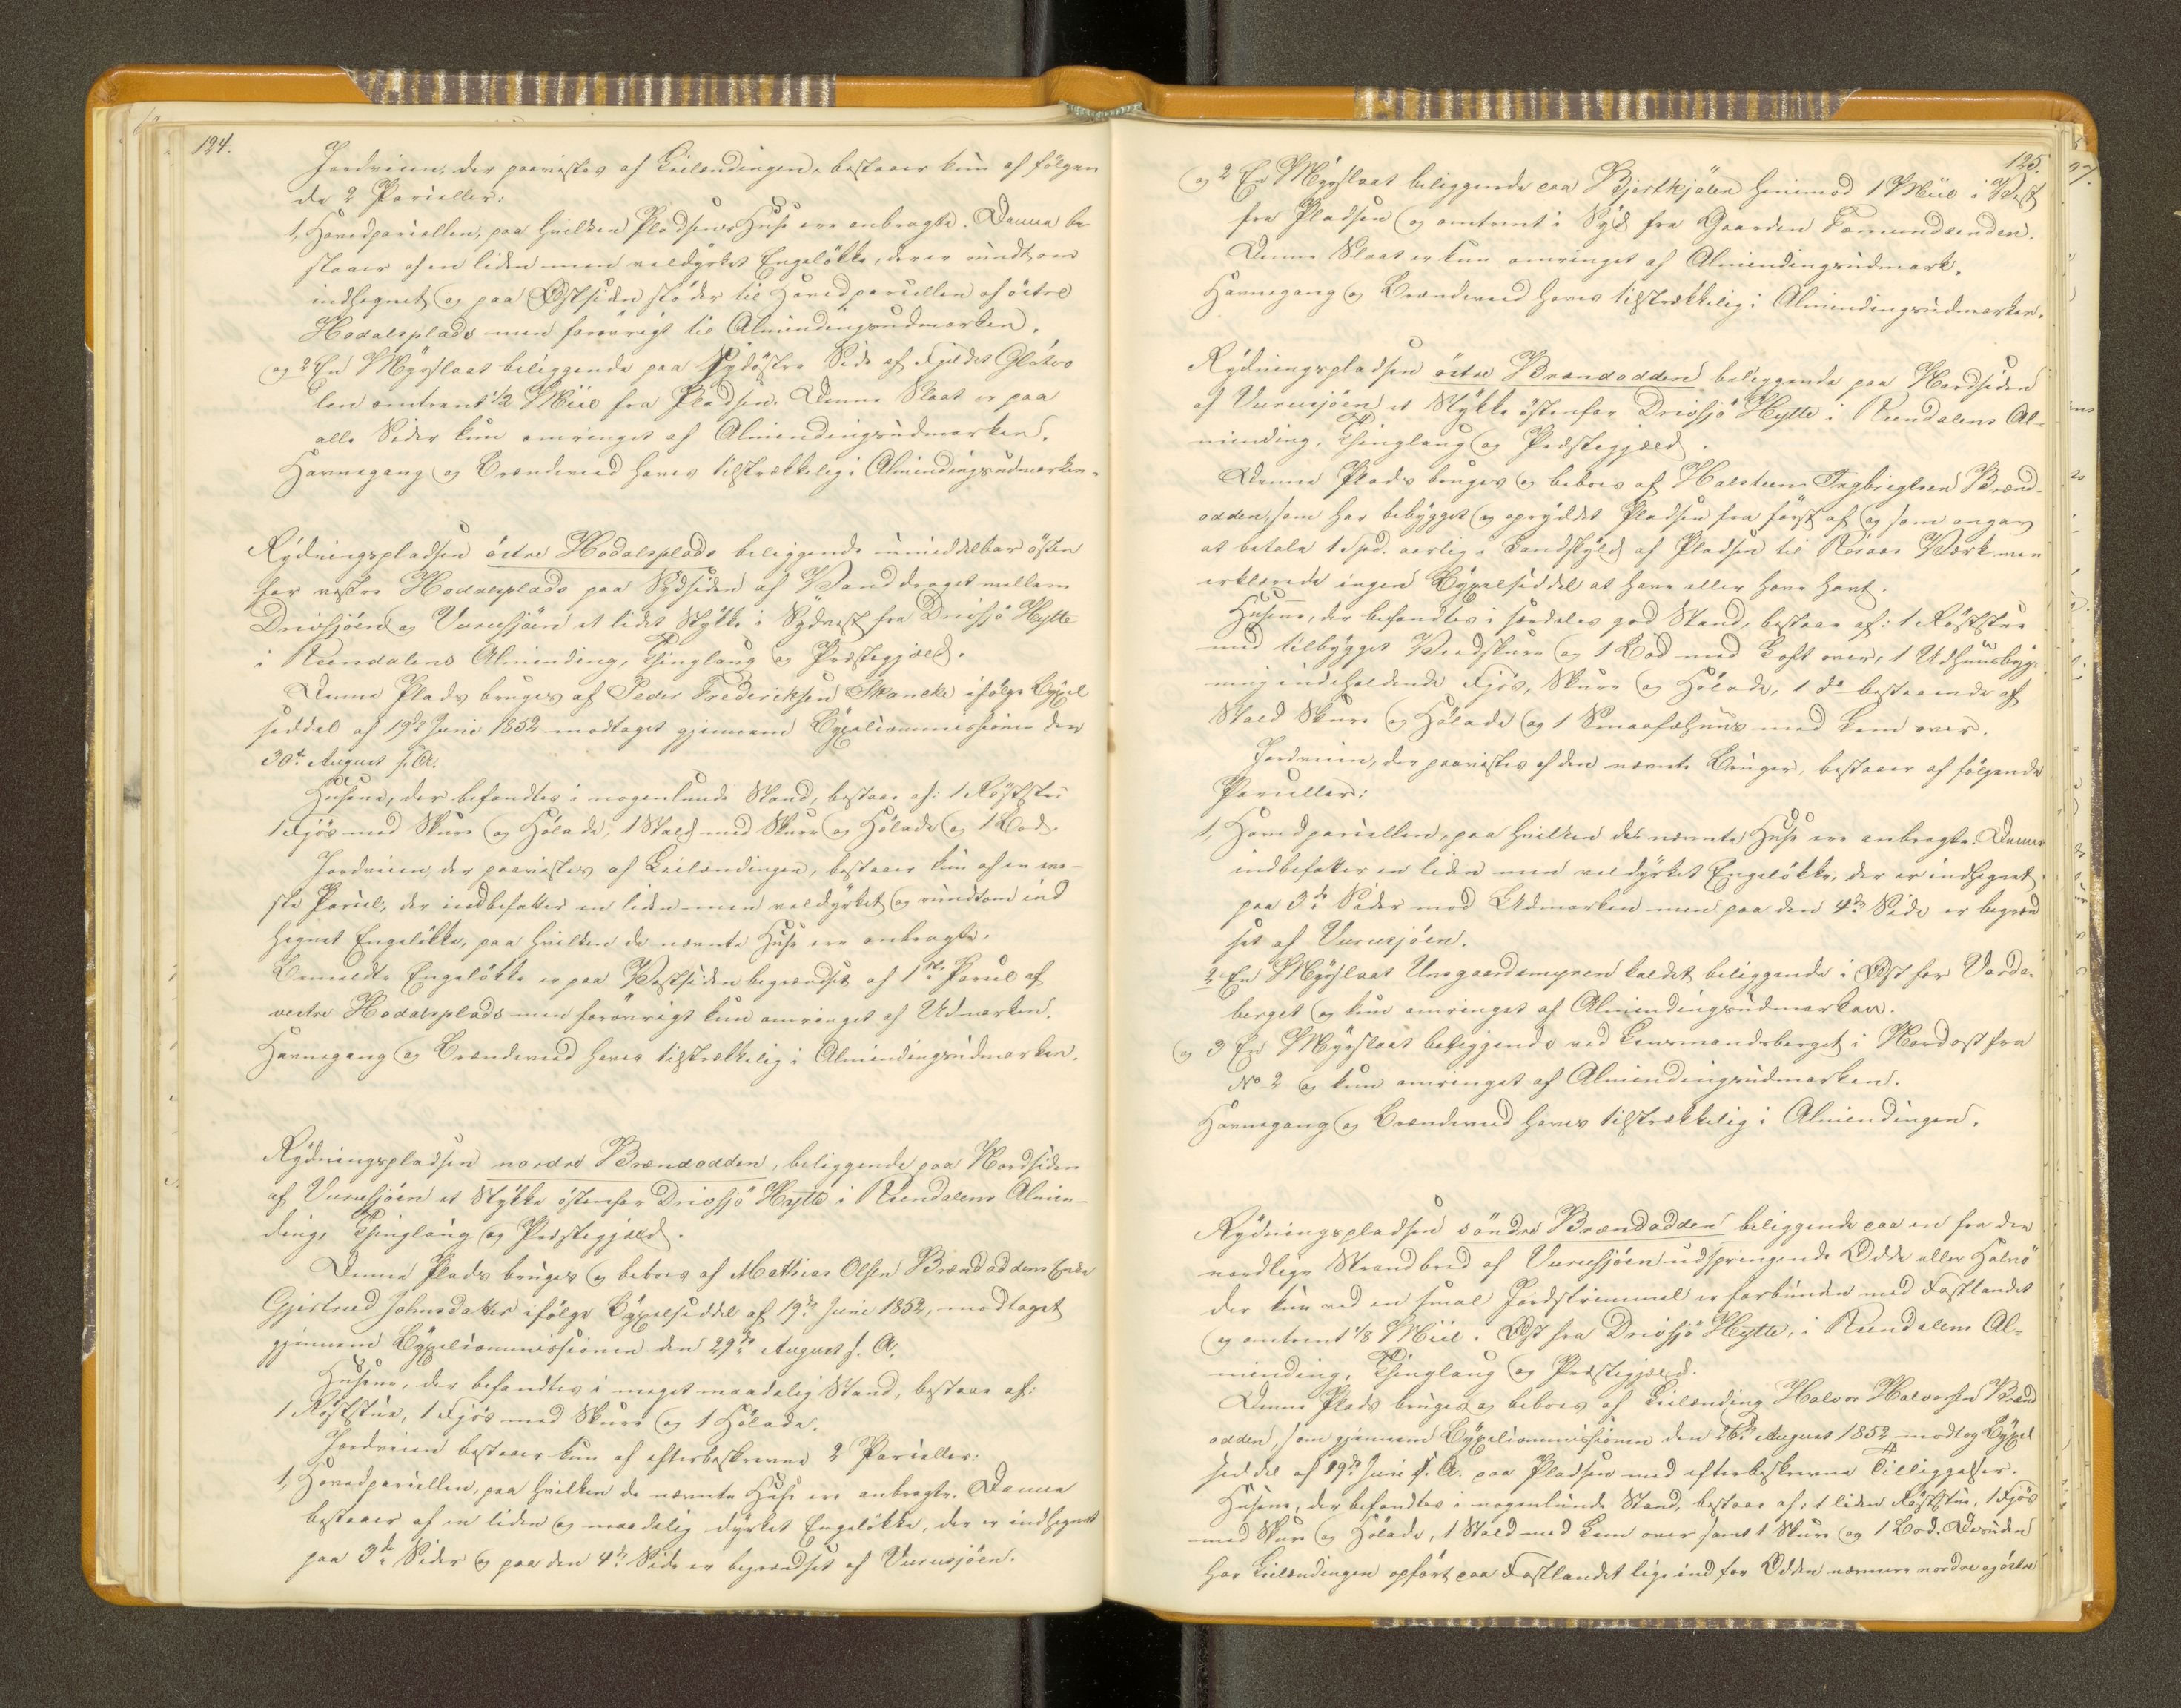 124.
Jordveien, der paavistes af Leilændingen, bestaaer kun af følgen
de 2 Parceller:
1, Hovedparcellen, paa hvilken Pladsens Huse ere anbragte. Denne be
staaer af en liden men veldyrket Engeløkke, der er rundtom
indhegnet og paa Østsiden støder til Hovedparcellen af östre
Hodalsplads men forøvrigt til Almindingsudmarken.
og 2 En Myrslaat beliggende paa Sydøstre Side af Fjeldet Gløtvo
len omtrent 1/2 Miil fra Pladsen. Denne Slaat er paa
alle Sider kun omringet af Almindingsudmarken.
Havnegang og Brændeved haves tilstrækkelig i Almindingsudmarken.
Rydningspladsen östre Hodalsplads beliggende umiddelbar østen
for vestre Hodalsplads paa Sydsiden af Vanddraget mellem
Drivsjöen og Vurrusjöen et lidet Stykke i Sydvest fra Drivsjö Hytte
i Rendalens Alminding, Thinglaug og Præstegjæld.
Denne Plads bruges af Peder Frederiksen Skancke ifølge Byxel
seddel af 19de Juni 1852 modtaget gjennem Byxelcommissionen den
30te August s. A.
Husene, der befandtes i nogenlunde Stand, bestaae af: 1 Røststue
1 Fjös med Skure og Hölade, 1 Stald med Skure og Hölade og 1 Bod.
Jordveien, der paavistes af Leilændingen, bestaaer kun af en ene-
ste Parcel, der indbefatter en liden men veldyrket og rundtom ind
hegnet Engeløkke, paa hvilken de nævnte Huse ere anbragte.
Bemeldte Engeløkke er paa Vestsiden begrændset af 1ste Parcel af
vestre Hodalsplads men forøvrigt kun omringet af Udmarken.
Havnegang og Brændeved haves tilstrækkelig i Almindingsudmarken.
Rydningspladsen nordre Brændodden, beliggende paa Nordsiden
af Vurrusjöen et Stykke østenfor Drivsjö Hytte i Rendalens Almin-
ding, Thinglaug og Præstegjæld.
Denne Plads bruges og beboes af Mathias Olsen Brændoddens Enke
Gjertrud Johnsdatter ifølge Byxelseddel af 19de Juni 1852, modtaget
gjennem Byxelcommissionen den 29de August s. A.
Husene, der befandtes i meget maadelig Stand, bestaae af:
1 Røststue, 1 Fjös med Skure og 1 Hölade.
Jordveien bestaaer kun af efterbeskrevne 2 Parceller:
1, Hovedparcellen, paa hvilken de nævnte Huse ere anbragte. Denne
bestaaer af en liden og maadelig dyrket Engeløkke, der er indhegnet
paa 3de Sider og paa den 4de Side er begrændset af Vurrusjöen.
125.
og 2 En Myrslaat beliggende paa Bjertkjölen henimod 1 Miil i Vest
fra Pladsen og omtrent i Syd fra Gaarden Fæmundsenden.
Denne Slaat er kun omringet af Almindingsudmark.
Havnegang og Brændeved haves tilstrækkelig i Almindingsudmarken.
Rydningspladsen östre Brændodden beliggende paa Nordsiden
af Vurrusjöen et Stykke østenfor Drivsjö Hytte i Rendalens Al-
minding, Thinglaug og Præstegjæld.
Denne Plads bruges og beboes af Halsteen Ingbrigtsen Brænd-
odden, som har bebygget og opryddet Pladsen fra først af og som angav
at betale 1 Spd. aarlig i Landskyld af Pladsen til Röraas Værk men
erklærede ingen Byxelseddel at have eller have havt.
Husene, der befandtes i særdeles god Stand, bestaae af: 1 Røststue
med tilbygget Vedskure og 1 Bod med Loft over, 1 Udhuusbyg-
ning indeholdende Fjös, Skure og Hölade, 1 do bestaaende af
Stald Skure og Hölade og 1 Smaafæhuus med Lem over.
Jordveien, der paavistes af den nævnte Bruger, bestaaer af følgende
Parceller:
1, Hovedparcellen, paa hvilken de nævnte Huse ere anbragte. Denne
indbefatter en liden men veldyrket Engeløkke, der er indhegnet
paa 3de Sider mod Udmarken men paa den 4de Side er begrænd
set af Vurrusjöen.
2 En Myrslaat Unsgaardsmyren kaldet beliggende i Øst for Varda-
berget og kun omringet af Almindingsudmarken.
og 3 En Myrslaat beliggende ved Lensmandsberget i Nordost fra
No 2 og kun omringet af Almindingsudmarken.
Havnegang og Brændeved haves tilstrækkelig i Almindingen.
Rydningspladsen söndre Brændodden beliggende paa en fra den
nordlige Strandbred af Vurrusjöen udspringende Odde eller Halvö
der kun ved en smal Jordstrimmel er forbunden med Fastlandet
og omtrent 1/8 Miil i Øst fra Drivsjö Hytte, i Rendalens Al-
minding, Thinglaug og Præstegjæld.
Denne Plads bruges og beboes af Leilænding Halvor Halvorsen Brænd
odden, som gjennem Byxelcommissionen den 26de August 1852 modtog Byxel
seddel af 19de Juni s. A. paa Pladsen med efterbeskrevne Tilliggelser.
Husene, der befandtes i nogenlunde Stand, bestaae af: 1 liden Røststue, 1 Fjös
med Skure og Hölade, 1 Stald med Lem over samt 1 Skure og 1 Bod. Desuden
har Leilændingen opført paa Fastlandet lige ind for Odden nærmere nordre og östre